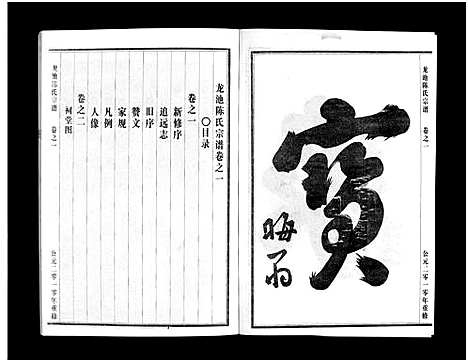 龙池陈氏宗谱 卷之一
寶
晦翁
公元二零一零年重修
龙池陈氏宗谱卷之一
○目录
卷之一
新修序
追远志
旧序
赞文
家规
凡例
人像
卷之二
祠堂图
龙池陈氏宗谱 卷之一
公元二零一零年重修